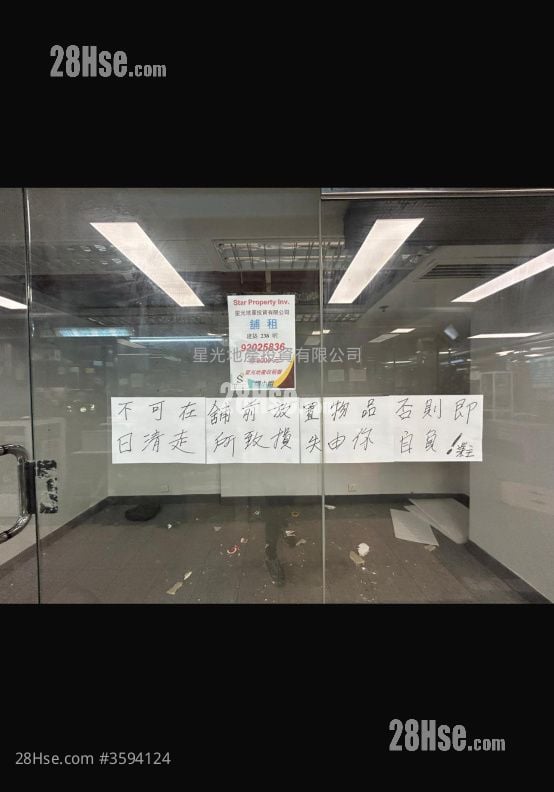 28Hse.com
Star Property Inv.
星光地產投資有限公司
舖 租
建築 236 呎
92025836
星光地產投資有限公司
28Hse.com
不可在舖前放置物品 否則即
日清走 所致損失由你 自負！業主
28Hse.com
28Hse.com #3594124